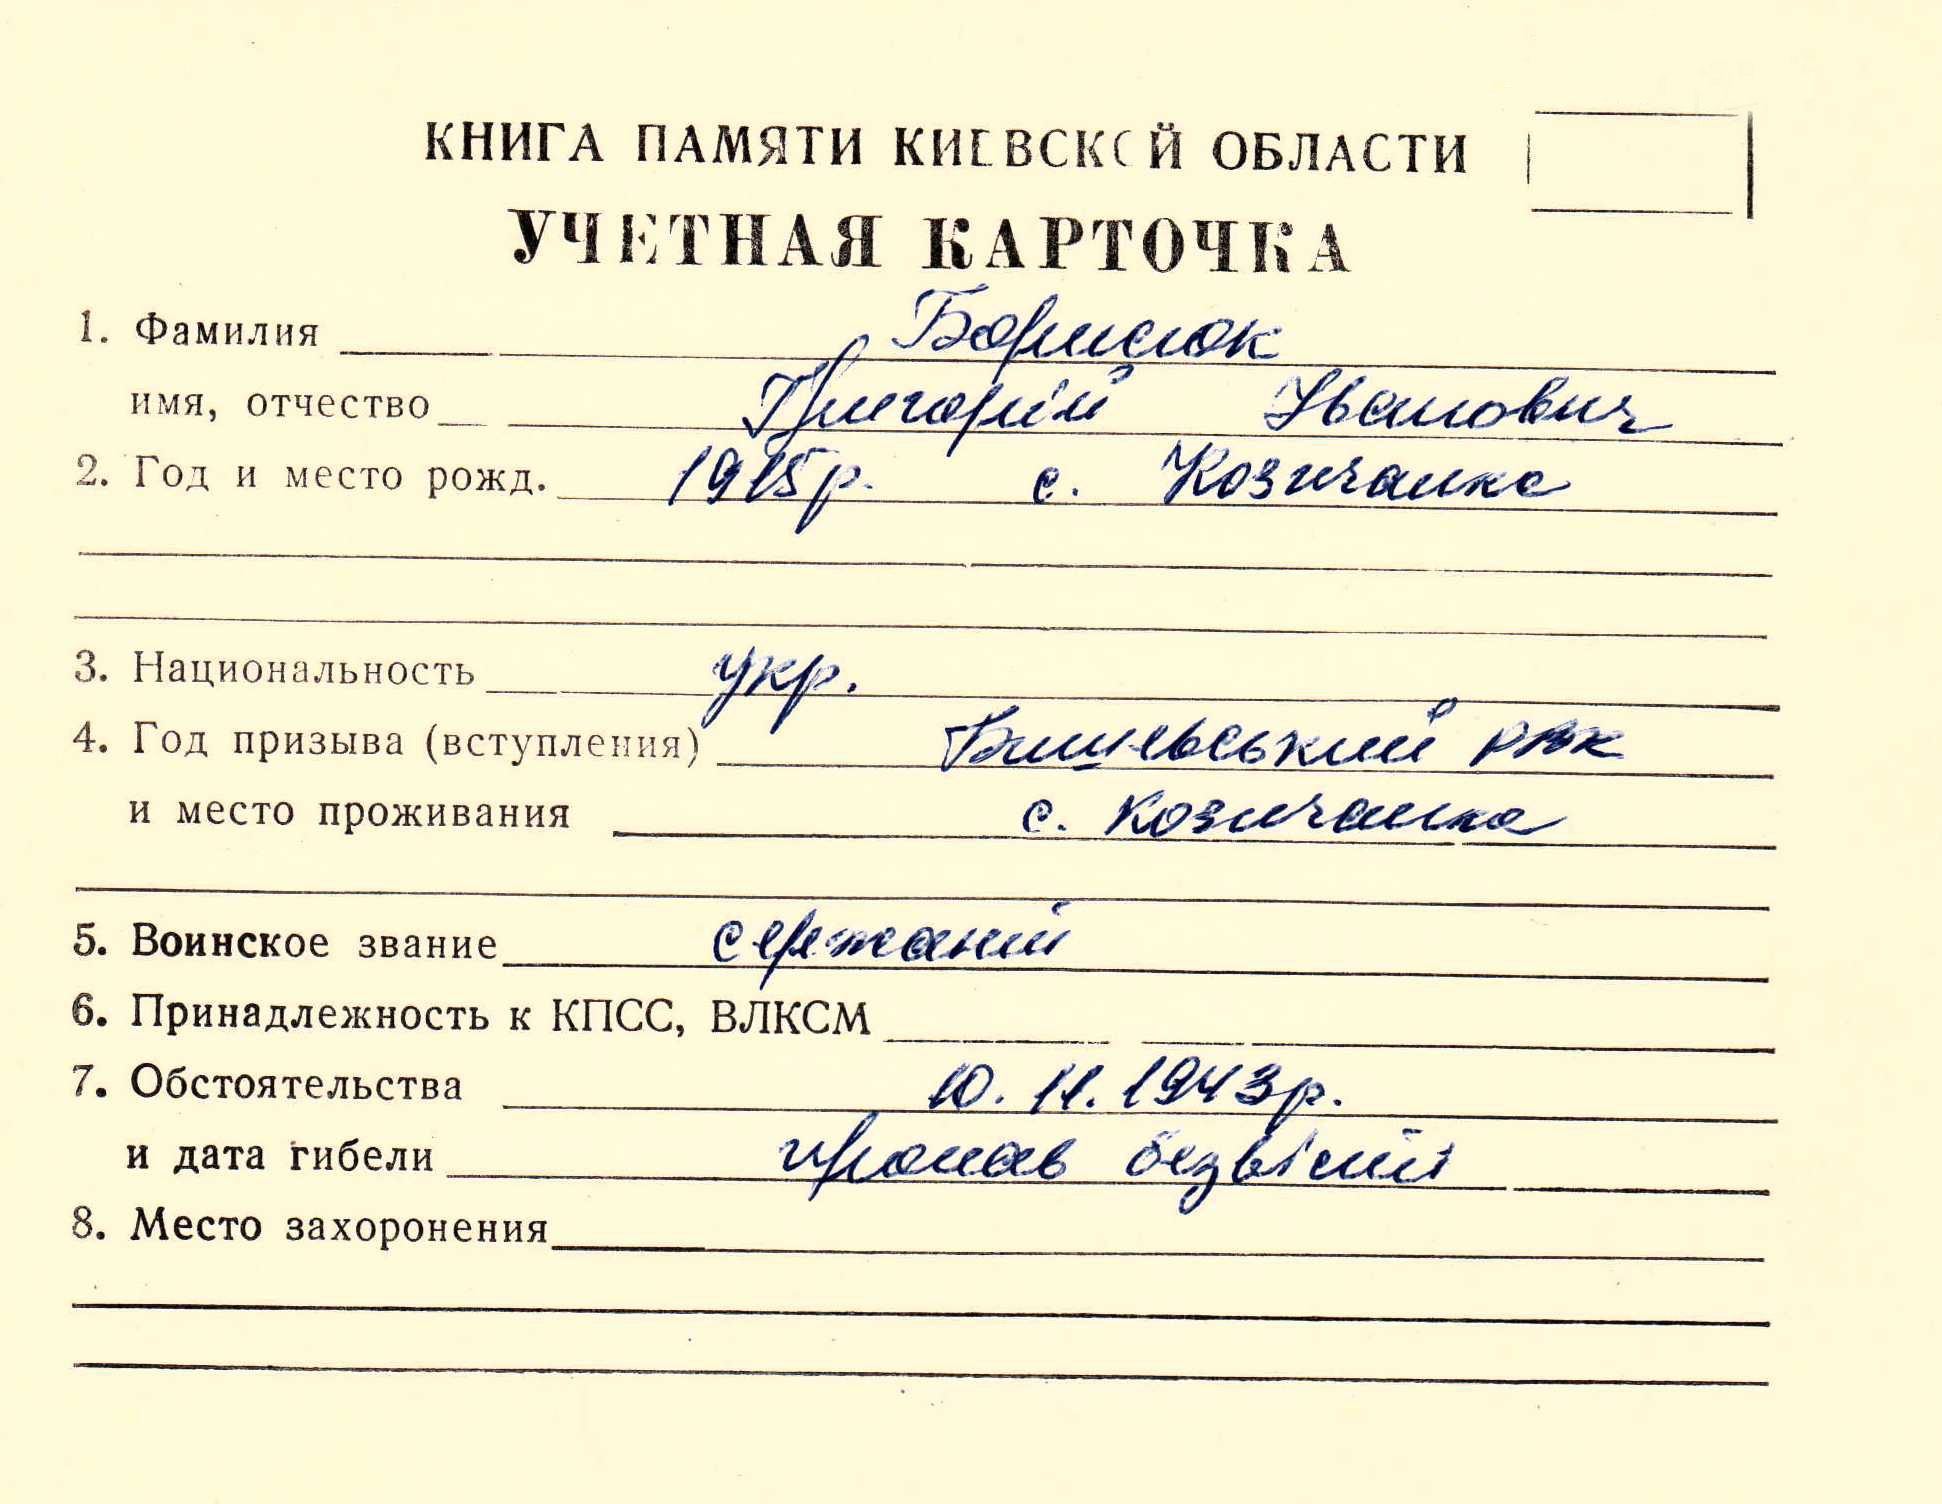 КНИГА ПАМЯТИ КИЕВСКОЙ ОБЛАСТИ
УЧЕТНАЯ КАРТОЧКА
1. Фамилия Борисюк
имя, отчество Григорій Іванович
2. Год и место рожд. 1915р. с. Козичанка
3. Национальность укр.
4. Год призыва (вступления) Бишевський РВК
и место проживания с. Козичанка
5. Воинское звание сержант
6. Принадлежность к КПСС, ВЛКСМ
7. Обстоятельства 10.11.1943р.
и дата гибели пропав безвісті
8. Место захоронения